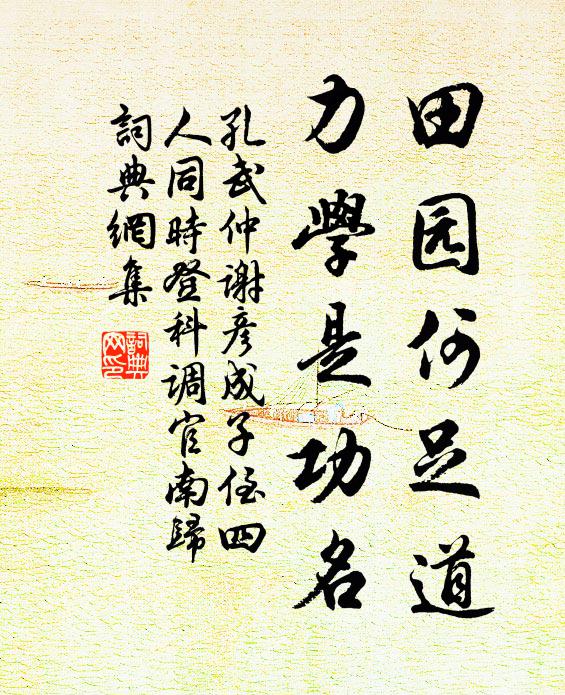 田园何足道
力學是功名
孔武仲谢彦成子侄四
人同時登科调官南歸
詞典網集
詞典
网印